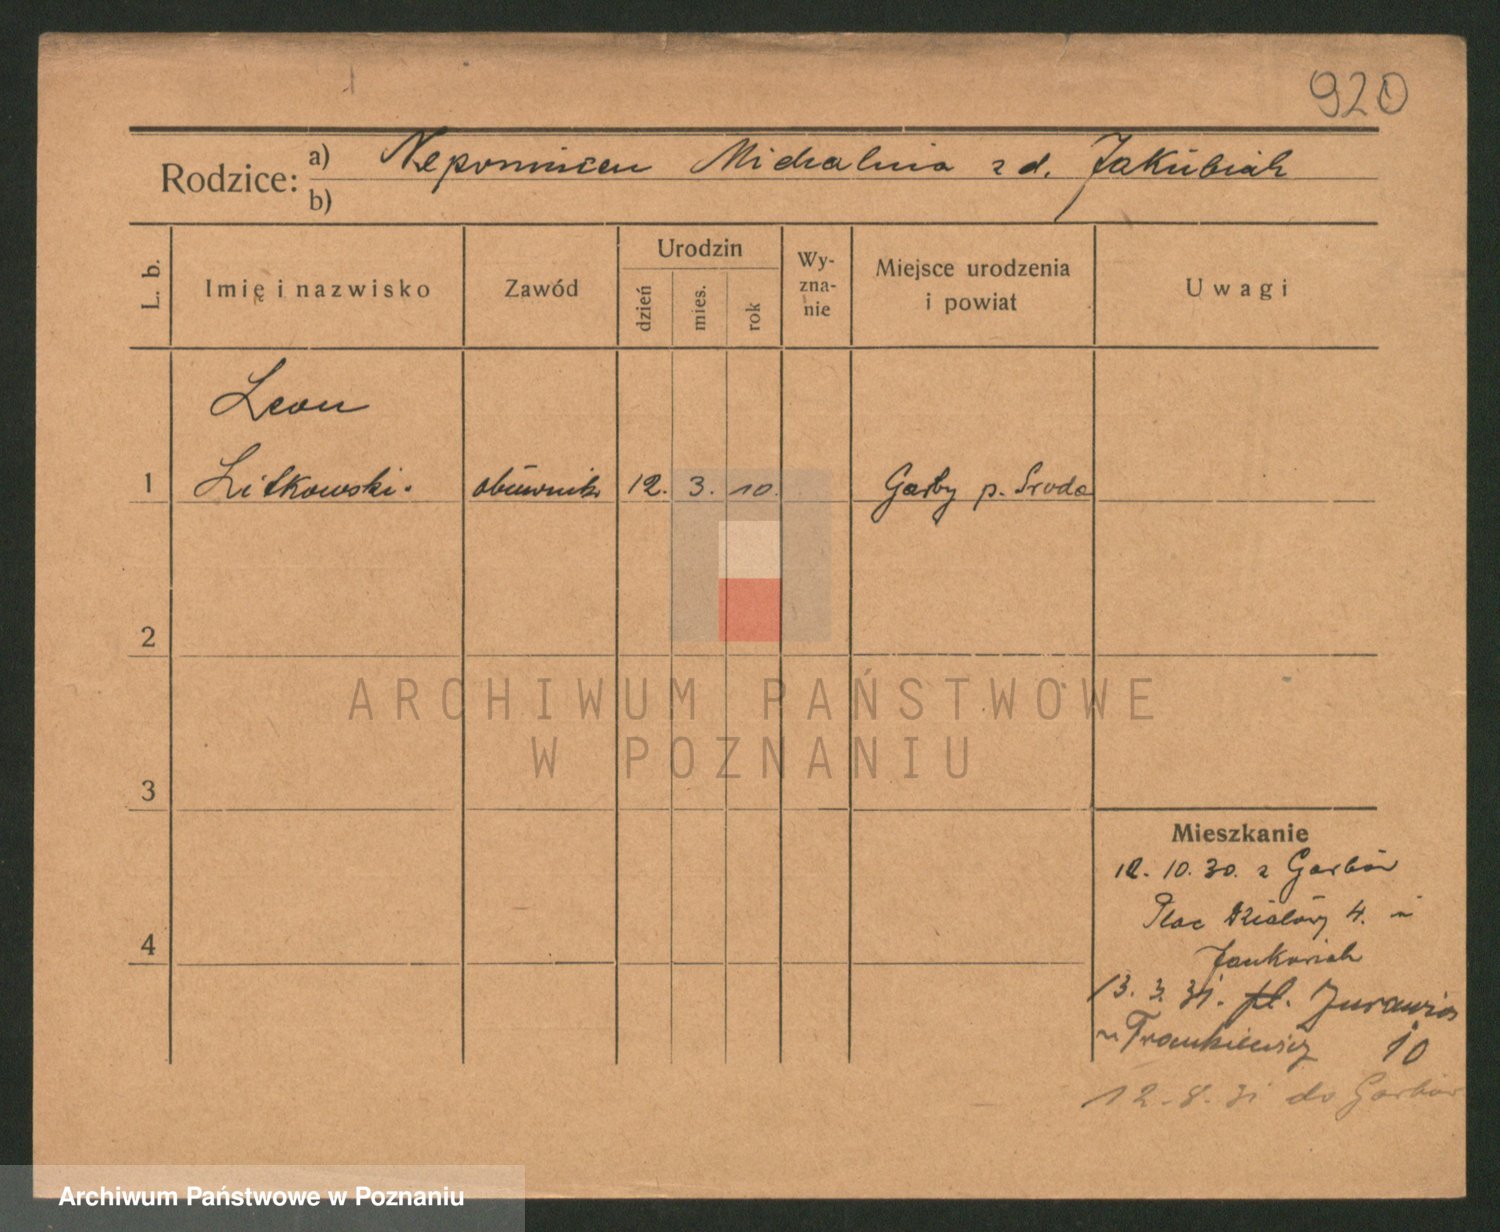 920
Rodzice: a) Nepomucen Michalina z d. Jakubiak
b)
L. b.
Imię i nazwisko
Zawód
Urodzin
dzień
mies.
rok
Wy-
zna-
nie
Miejsce urodzenia
i powiat
Uwagi
Leon
1 Litkowski. obuwnik 12. 3. 10. Garby p. Sroda
2
3
4
Mieszkanie
12. 10. 30. z Garbów
Plac 4. u
13. 3. 31. pl.
u 10
12. 8. 31 do Garbów
ARCHIWUM PAŃSTWOWE
W POZNANIU
Archiwum Państwowe w Poznaniu